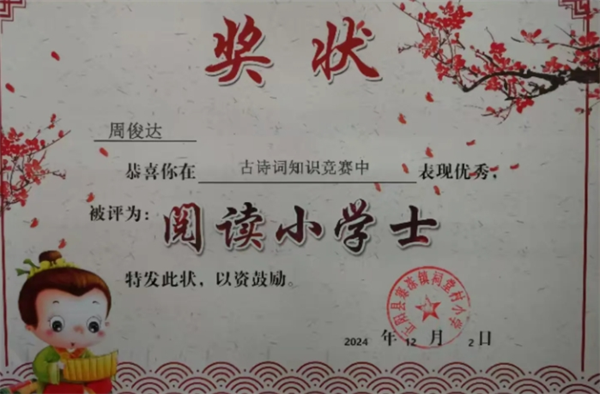 奖状
周俊达
恭喜你在 古诗词知识竞赛中 表现优秀，
被评为：
阅读小学士
特发此状，以资鼓励。
2024 年 12 月 2 日